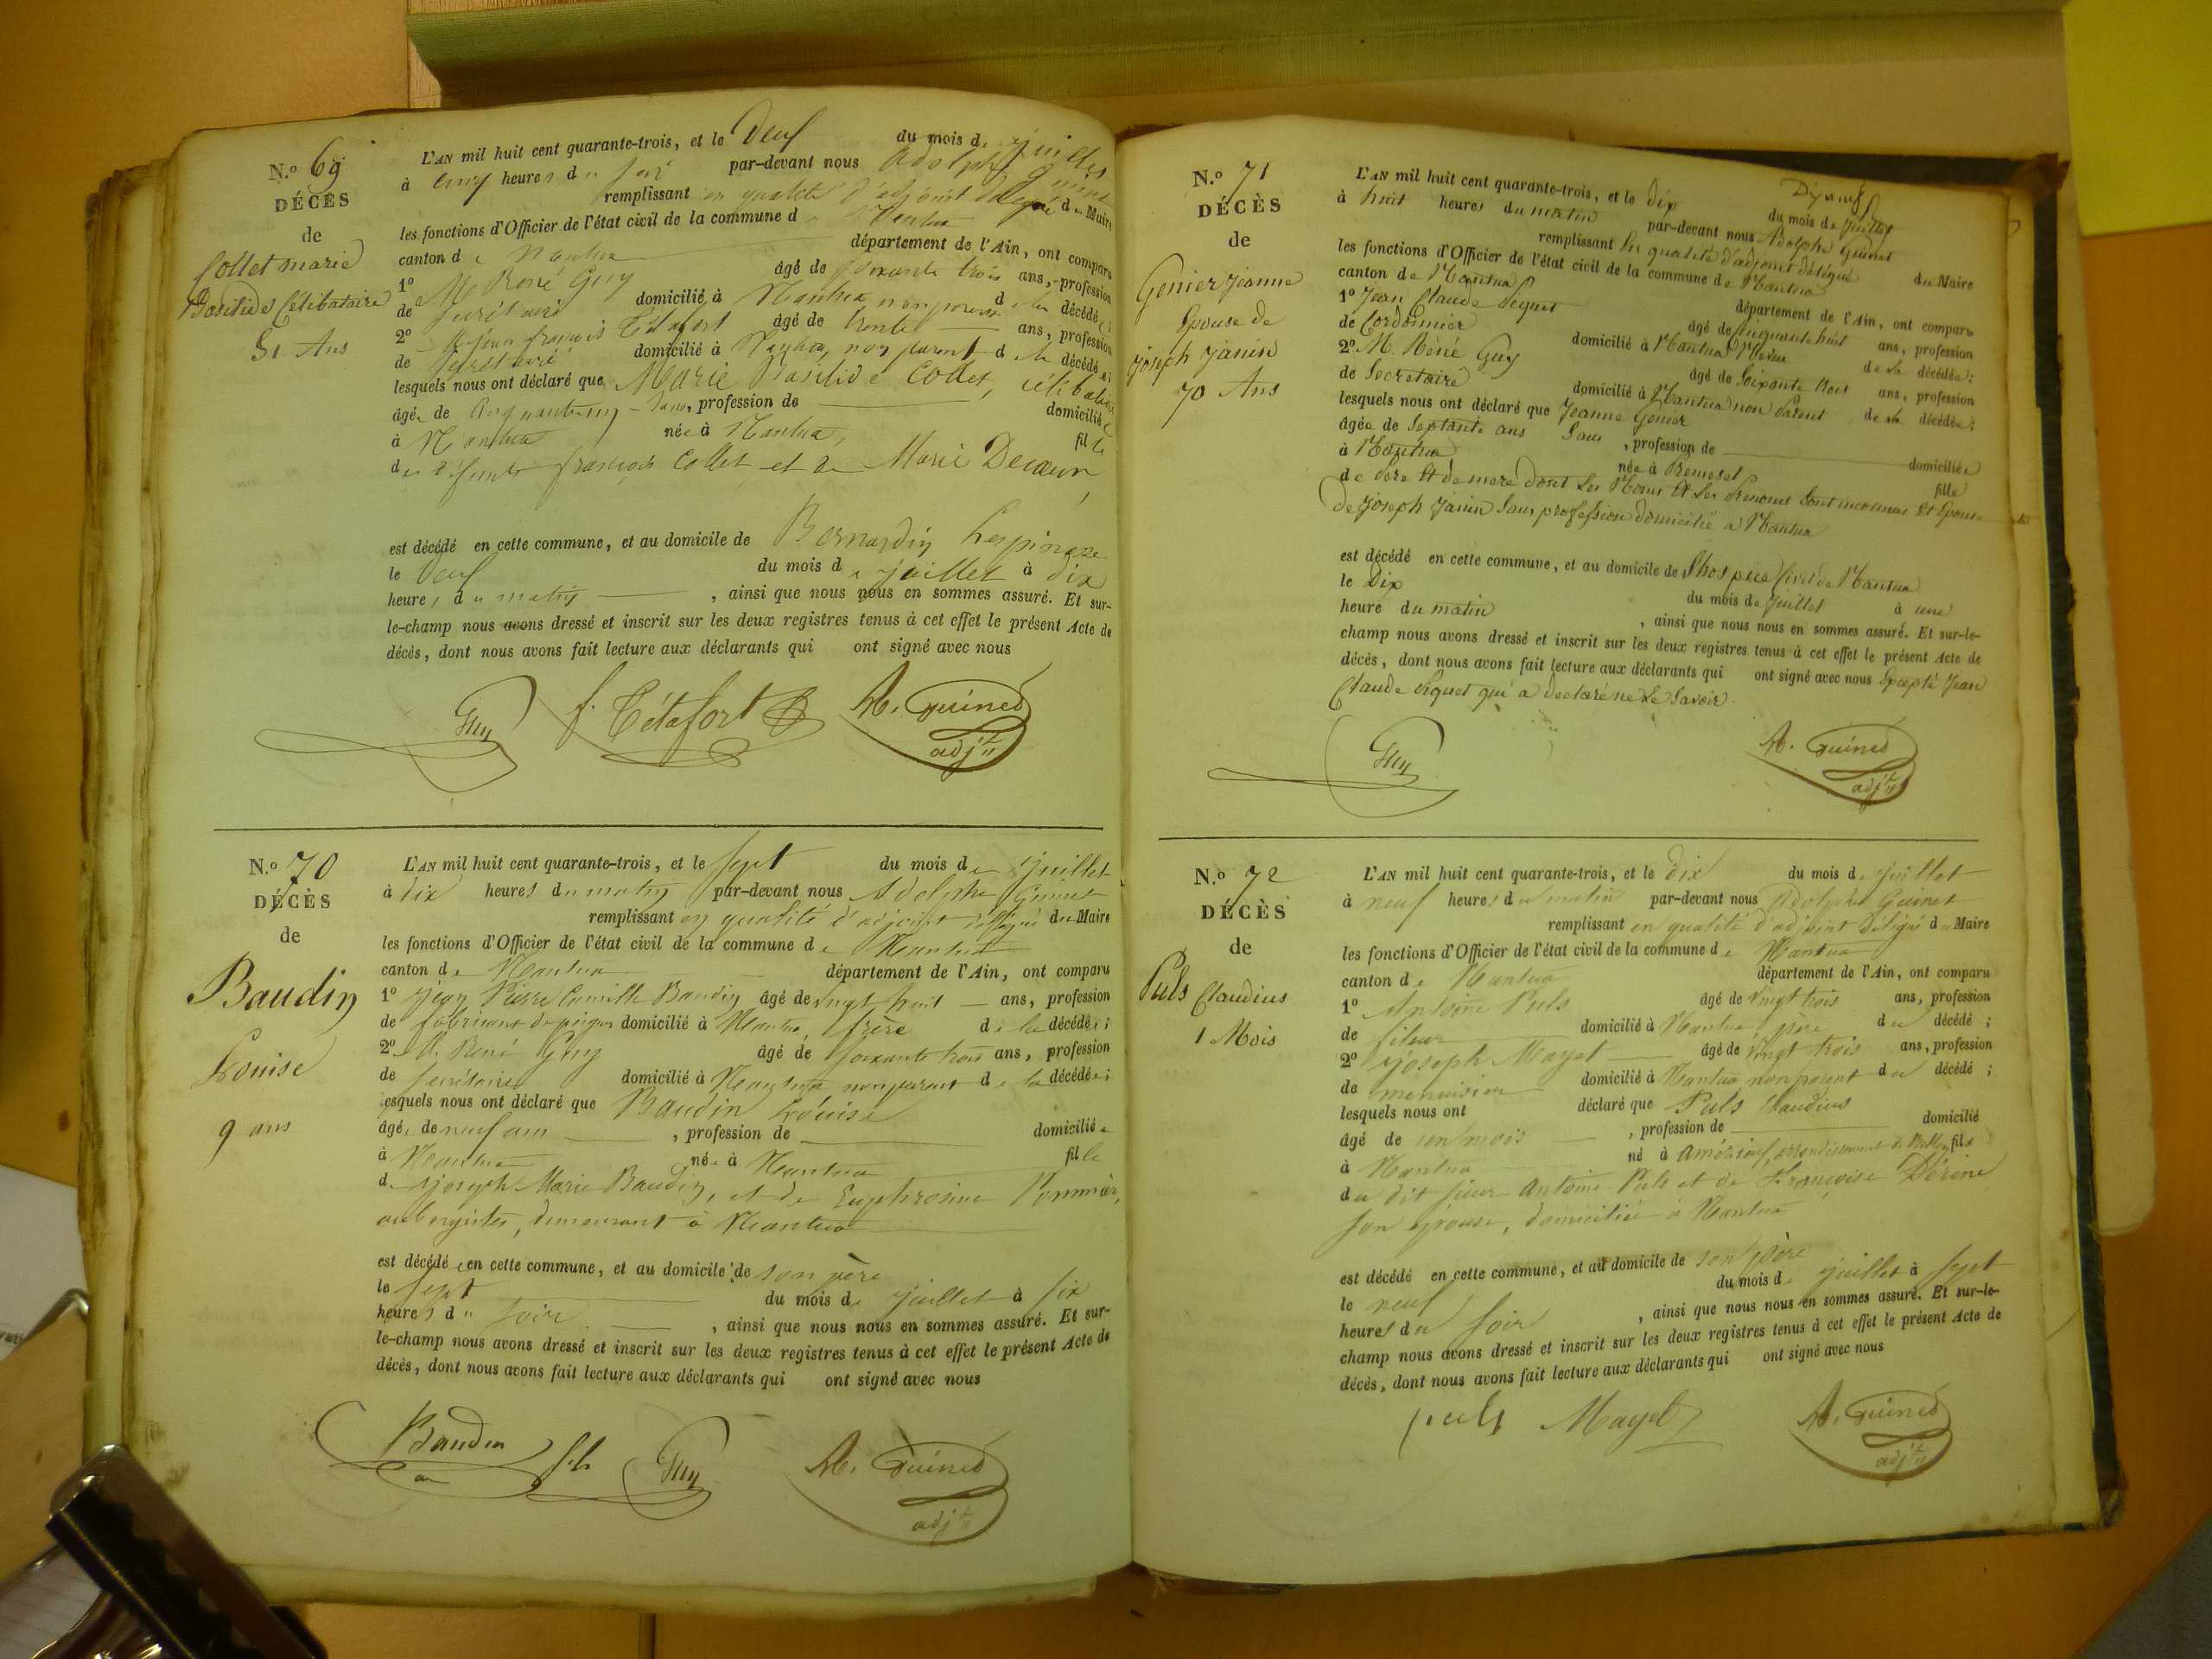 N.o 69
DÉCÈS
de
Collet marie
Basilide Célibataire
51 Ans
L'AN mil huit cent quarante-trois, et le Neuf du mois de juillet
à cinq heures du soir par-devant nous Adolphe Guinet
remplissant en qualité d'adjoint délégué du Maire
les fonctions d'Officier de l'état civil de la commune de Nantua
canton de Nantua département de l'Ain, ont comparu
1º M. René Guy âgé de soixante trois ans, profession
de secrétaire domicilié à Nantua non parent de la décédée;
2º M. jean françois Tétafort âgé de trente ans, profession
de secrétaire domicilié à Nantua, non parent de la décédée;
lesquels nous ont déclaré que Marie Basilide Collet, célibataire
âgée de cinquante-un ans, profession de domiciliée
à Nantua née à Nantua, fille
des défunts françois Collet et de Marie Decoeur,
est décédé en cette commune, et au domicile de Bernardin Lespinasse
le Neuf du mois de juillet à dix
heures du matin, ainsi que nous nous en sommes assuré. Et sur-
le-champ nous avons dressé et inscrit sur les deux registres tenus à cet effet le présent Acte de
décès, dont nous avons fait lecture aux déclarants qui ont signé avec nous
Guy f. Tétafort A. Guinet
adjt
N.o 70
DÉCÈS
de
Baudin
Louise
9 ans
L'AN mil huit cent quarante-trois, et le sept du mois de juillet
à dix heures du matin par-devant nous Adolphe Guinet
remplissant en qualité d'adjoint délégué du Maire
les fonctions d'Officier de l'état civil de la commune de Nantua
canton de Nantua département de l'Ain, ont comparu
1º jean Pierre Camille Baudin âgé de vingt huit ans, profession
de fabricant de peignes domicilié à Nantua, frère de la décédée;
2º M. René Guy âgé de soixante trois ans, profession
de secrétaire domicilié à Nantua non parent de la décédée;
lesquels nous ont déclaré que Baudin Louise
âgée de neuf ans, profession de domiciliée
à Nantua née à Nantua fille
de joseph Marie Baudin, et de Euphrosine Pommier,
aubergistes, demeurant à Nantua
est décédée en cette commune, et au domicile de son père
le sept du mois de juillet à six
heures du soir, ainsi que nous nous en sommes assuré. Et sur-
le-champ nous avons dressé et inscrit sur les deux registres tenus à cet effet le présent Acte de
décès, dont nous avons fait lecture aux déclarants qui ont signé avec nous
Baudin fils Guy A. Guinet
adjt
N.o 71
DÉCÈS
de
Genier Jeanne
Epouse de
joseph Janin
70 Ans
L'AN mil huit cent quarante-trois, et le dix du mois de Juillet
à huit heures du matin par-devant nous Adolphe Guinet
remplissant en qualité d'adjoint délégué du Maire
les fonctions d'Officier de l'état civil de la commune de Nantua
canton de Nantua département de l'Ain, ont comparu
1º Jean Claude Piquet âgé de cinquante huit ans, profession
de Cordonnier domicilié à Nantua Neveu de la décédée;
2º M. Réné Guy âgé de Soixante trois ans, profession
de Secretaire domicilié à Nantua non Parent de la décédée;
lesquels nous ont déclaré que Jeanne Genier
âgée de Septante ans Sans, profession de domiciliée
à Nantua née à fille
de Pere Et de mere dont Les Noms Et Les Prenoms Sont inconnus Et Epouse
de Joseph Janin Sans profession domicilié a Nantua
est décédé en cette commune, et au domicile de l'hospice Civil de Nantua
le Dix du mois de Juillet à une
heure du matin, ainsi que nous nous en sommes assuré. Et sur-le-
champ nous avons dressé et inscrit sur les deux registres tenus à cet effet le présent Acte de
décès, dont nous avons fait lecture aux déclarants qui ont signé avec nous Excepté Jean
Claude Piquet qui a declaré ne Le Savoir
Guy A. Guinet
adjt
N.o 72
DÉCÈS
de
Puls Claudius
1 Mois
L'AN mil huit cent quarante-trois, et le dix du mois de juillet
à neuf heures du matin par-devant nous Adolphe Guinet
remplissant en qualité d'adjoint délégué du Maire
les fonctions d'Officier de l'état civil de la commune de Nantua
canton de Nantua département de l'Ain, ont comparu
1º Antoine Puls âgé de vingt trois ans, profession
de fileur domicilié à Nantua, père du décédé;
2º joseph Mayet âgé de vingt trois ans, profession
de menuisier domicilié à Nantua non parent du décédé;
lesquels nous ont déclaré que Puls Claudius
âgé de un mois, profession de domicilié
à Nantua né à arrondissement de fils
du dit sieur Antoine Puls et de Françoise Dérine
son épouse, domiciliée à Nantua
est décédé en cette commune, et au domicile de son père
le neuf du mois de juillet à sept
heures du soir, ainsi que nous nous en sommes assuré. Et sur-le-
champ nous avons dressé et inscrit sur les deux registres tenus à cet effet le présent Acte de
décès, dont nous avons fait lecture aux déclarants qui ont signé avec nous
puls Mayet A. Guinet
adjt